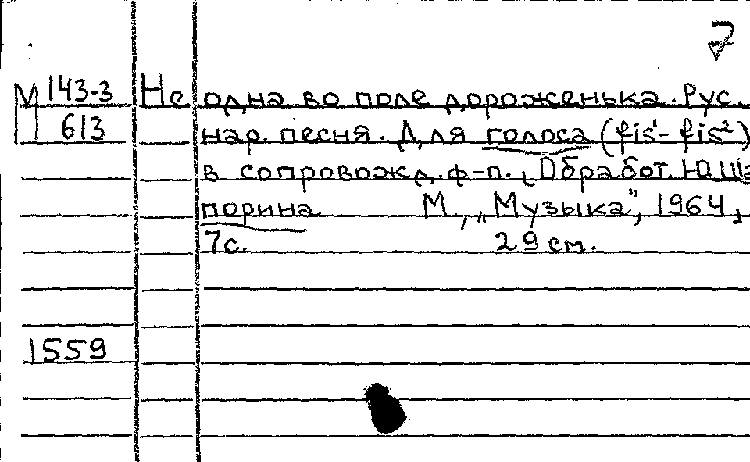 7
М 143-3 Не одна во поле дороженька. Рус.
613 нар. песня. Для голоса (fis¹- fis²)
в сопровожд. ф-п. Обработ. Ю. Ша
порина М., „Музыка", 1964,
7с. 29 см.
1559